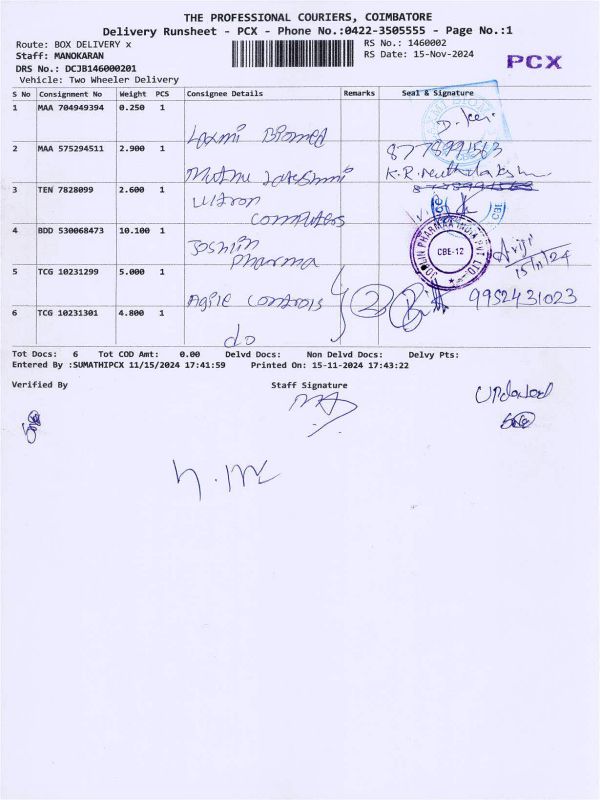 THE PROFESSIONAL COURIERS, COIMBATORE
Delivery Runsheet - PCX - Phone No.:0422-3505555 - Page No.:1
Route: BOX DELIVERY x
RS No.: 1460002
Staff: MANOKARAN
RS Date: 15-Nov-2024
PCX
DRS No.: DCJB146000201
Vehicle: Two Wheeler Delivery
S No Consignment No Weight PCS Consignee Details Remarks Seal & Signature
1 MAA 704949394 0.250 1
Laxmi Biomed
2 MAA 575294511 2.900 1 8778991563
Muthu Lakshmi K.R.
3 TEN 7828099 2.600 1
Ultron
computers
4 BDD 530068473 10.100 1
Joshlin
pharma
JOSLIN PHARMAA INDIA PVT LTD.
CBE-12
15/11/24
5 TCG 10231299 5.000 1
Agile controls 2 9952431023
6 TCG 10231301 4.800 1
do
Tot Docs: 6 Tot COD Amt: 0.00 Delvd Docs: Non Delvd Docs: Delvy Pts:
Entered By :SUMATHIPCX 11/15/2024 17:41:59 Printed On: 15-11-2024 17:43:22
Verified By Staff Signature
Updated